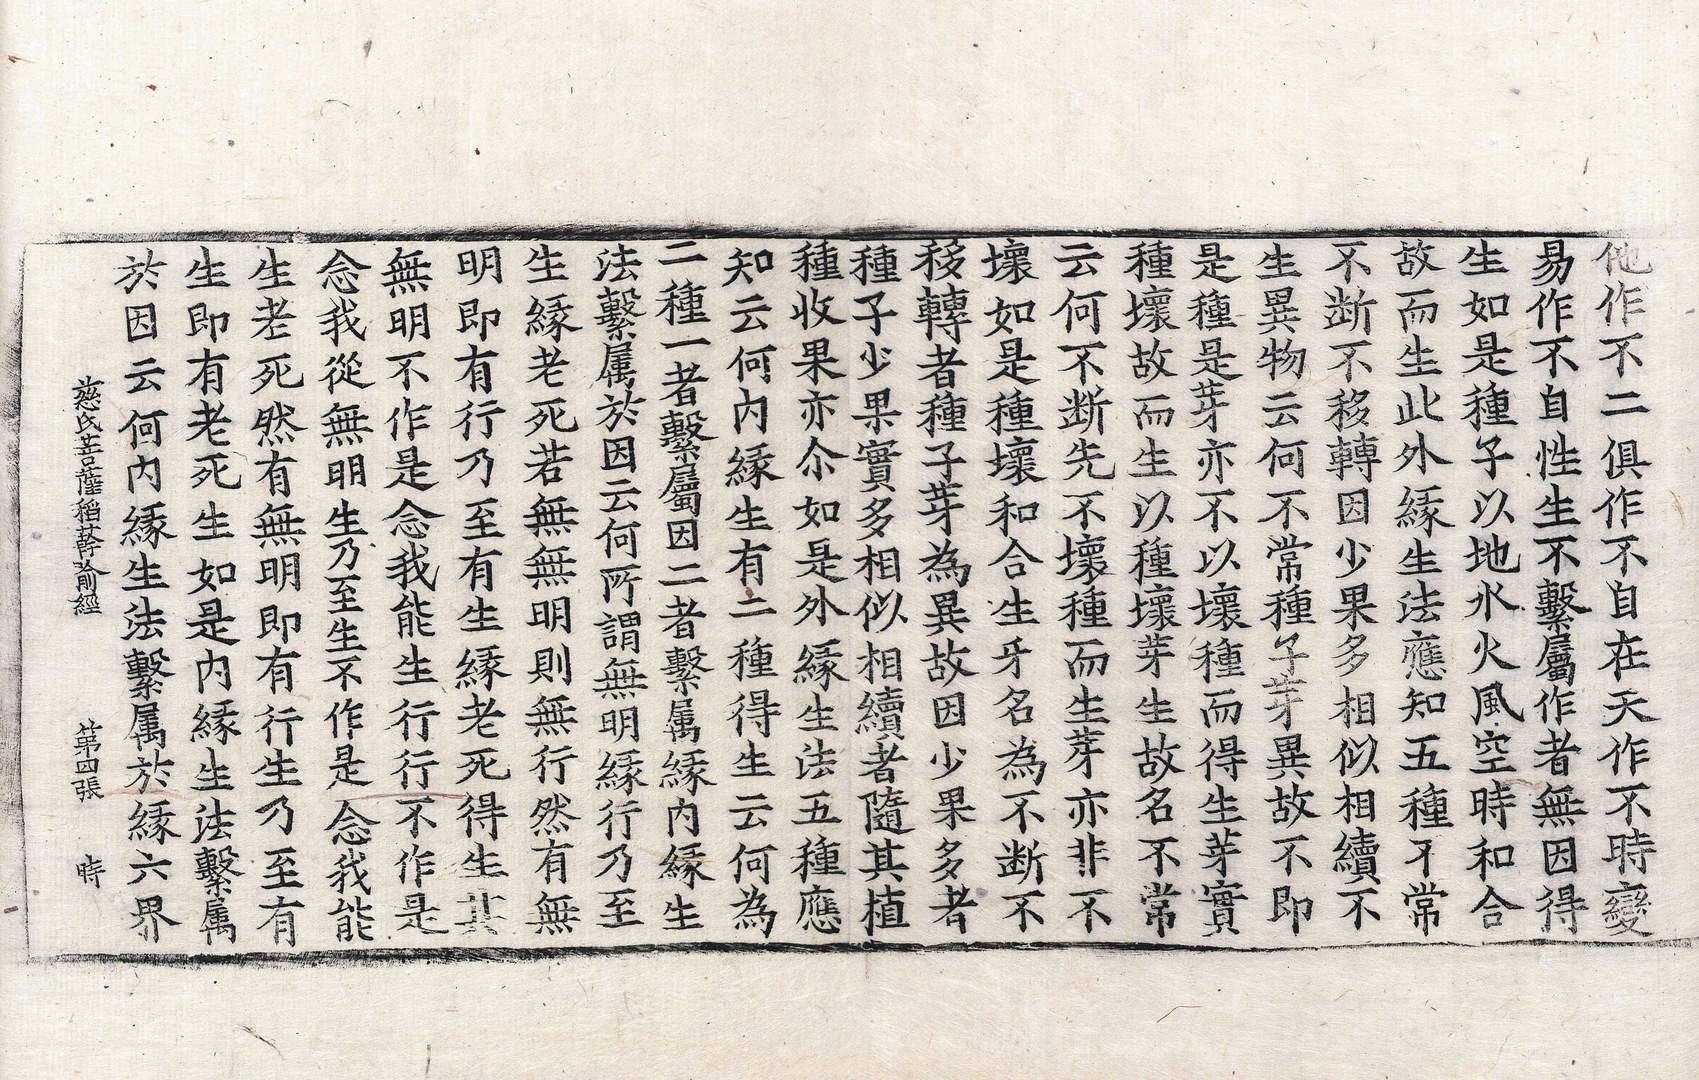 他作不二俱作不自在天作不時變
易作不自性生不繫屬作者無因得
生如是種子以地水火風空時和合
故而生此外緣生法應知五種不常
不断不移轉因少果多相似相續不
生異物云何不常種子芽異故不即
是種是芽亦不以壞種而得生芽實
種壞故而生以種壞芽生故名不常
云何不断先不壞種而生芽亦非不
壞如是種壞和合生牙名為不断不
移轉者種子芽為異故因少果多者
種子少果實多相似相續者隨其植
種收果亦尒如是外緣生法五種應
知云何內緣生有二種得生云何為
二種一者繫屬因二者繫属緣內緣生
法繫属於因云何所謂無明緣行乃至
生緣老死若無無明則無行然有無
明即有行乃至有生緣老死得生其
無明不作是念我能生行行不作是
念我從無明生乃至生不作是念我能
生老死然有無明即有行生乃至有
生即有老死生如是內緣生法繫属
於因云何內緣生法繫属於緣六界
慈氏菩薩稻𦼮喻經 第四張 時